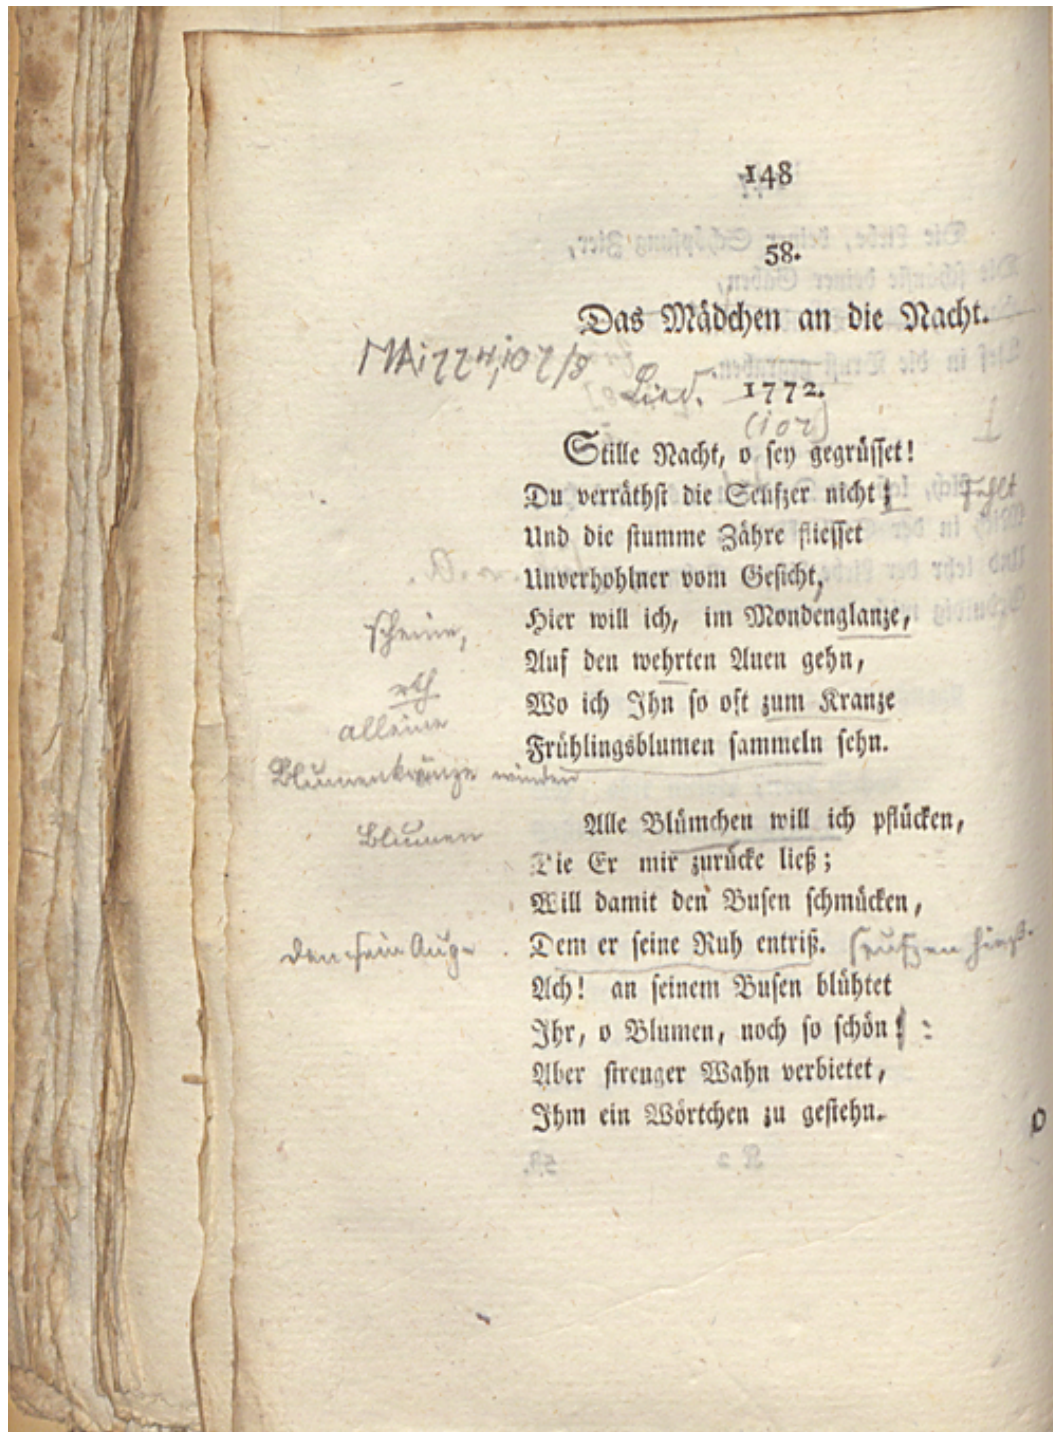 148
58.
Das Mädchen an die Nacht.
Lied. 1772.
Stille Nacht, o ſey gegrüſſet!
Du verräthſt die Seufzer nicht; Fehlt
Und die ſtumme Zähre flieſſet
Unverhohlner vom Geſicht,
ſcheine, Hier will ich, im Mondenglanze,
Auf den wehrten Auen gehn,
rth
Wo ich Ihn ſo oft zum Kranze
alleine
Frühlingsblumen ſammeln ſehn.
Blumenkränze winden
Alle Blümchen will ich pflücken,
Blumen
Die Er mir zurücke ließ;
Will damit den Buſen ſchmücken,
den ſein Auge Dem er ſeine Ruh entriß. ſeufzen hieß.
Ach! an ſeinem Buſen blühtet
Ihr, o Blumen, noch ſo ſchön! :
Aber ſtrenger Wahn verbietet,
Ihm ein Wörtchen zu geſtehn.